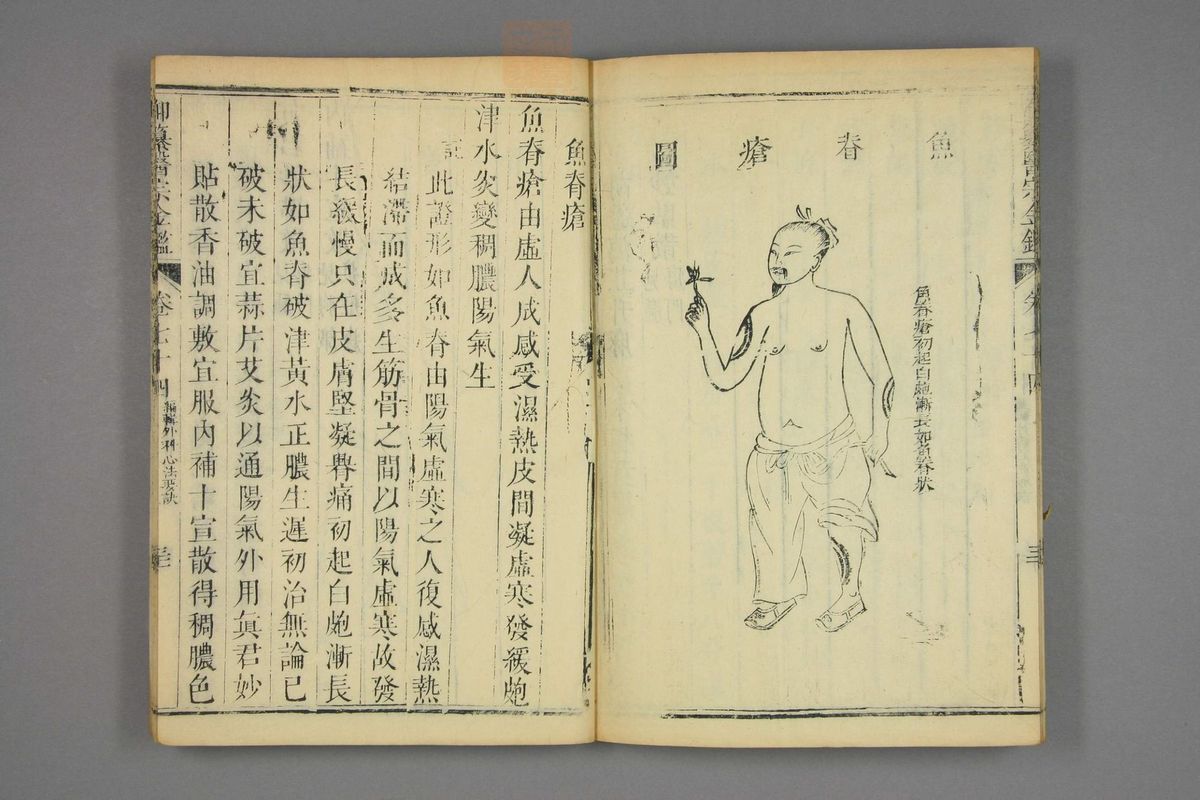 魚脊瘡圖
魚脊瘡初起白皰漸長如魚脊狀
魚脊瘡
魚脊瘡由虛人成感受濕熱皮間凝虛寒發緩皰
津水灸變稠膿陽氣生
此證形如魚脊由陽氣虛寒之人復感濕熱
結滯而成多生筋骨之間以陽氣虛寒故發
長緩慢只在皮膚堅凝㿋痛初起白皰漸長
狀如魚脊破津黃水正膿生遲初治無論已
破未破宜蒜片艾灸以通陽氣外用真君妙
貼散香油調敷宜服內補十宣散得稠膿色
御纂醫宗金鑑
卷七十四
編輯外科心法要訣